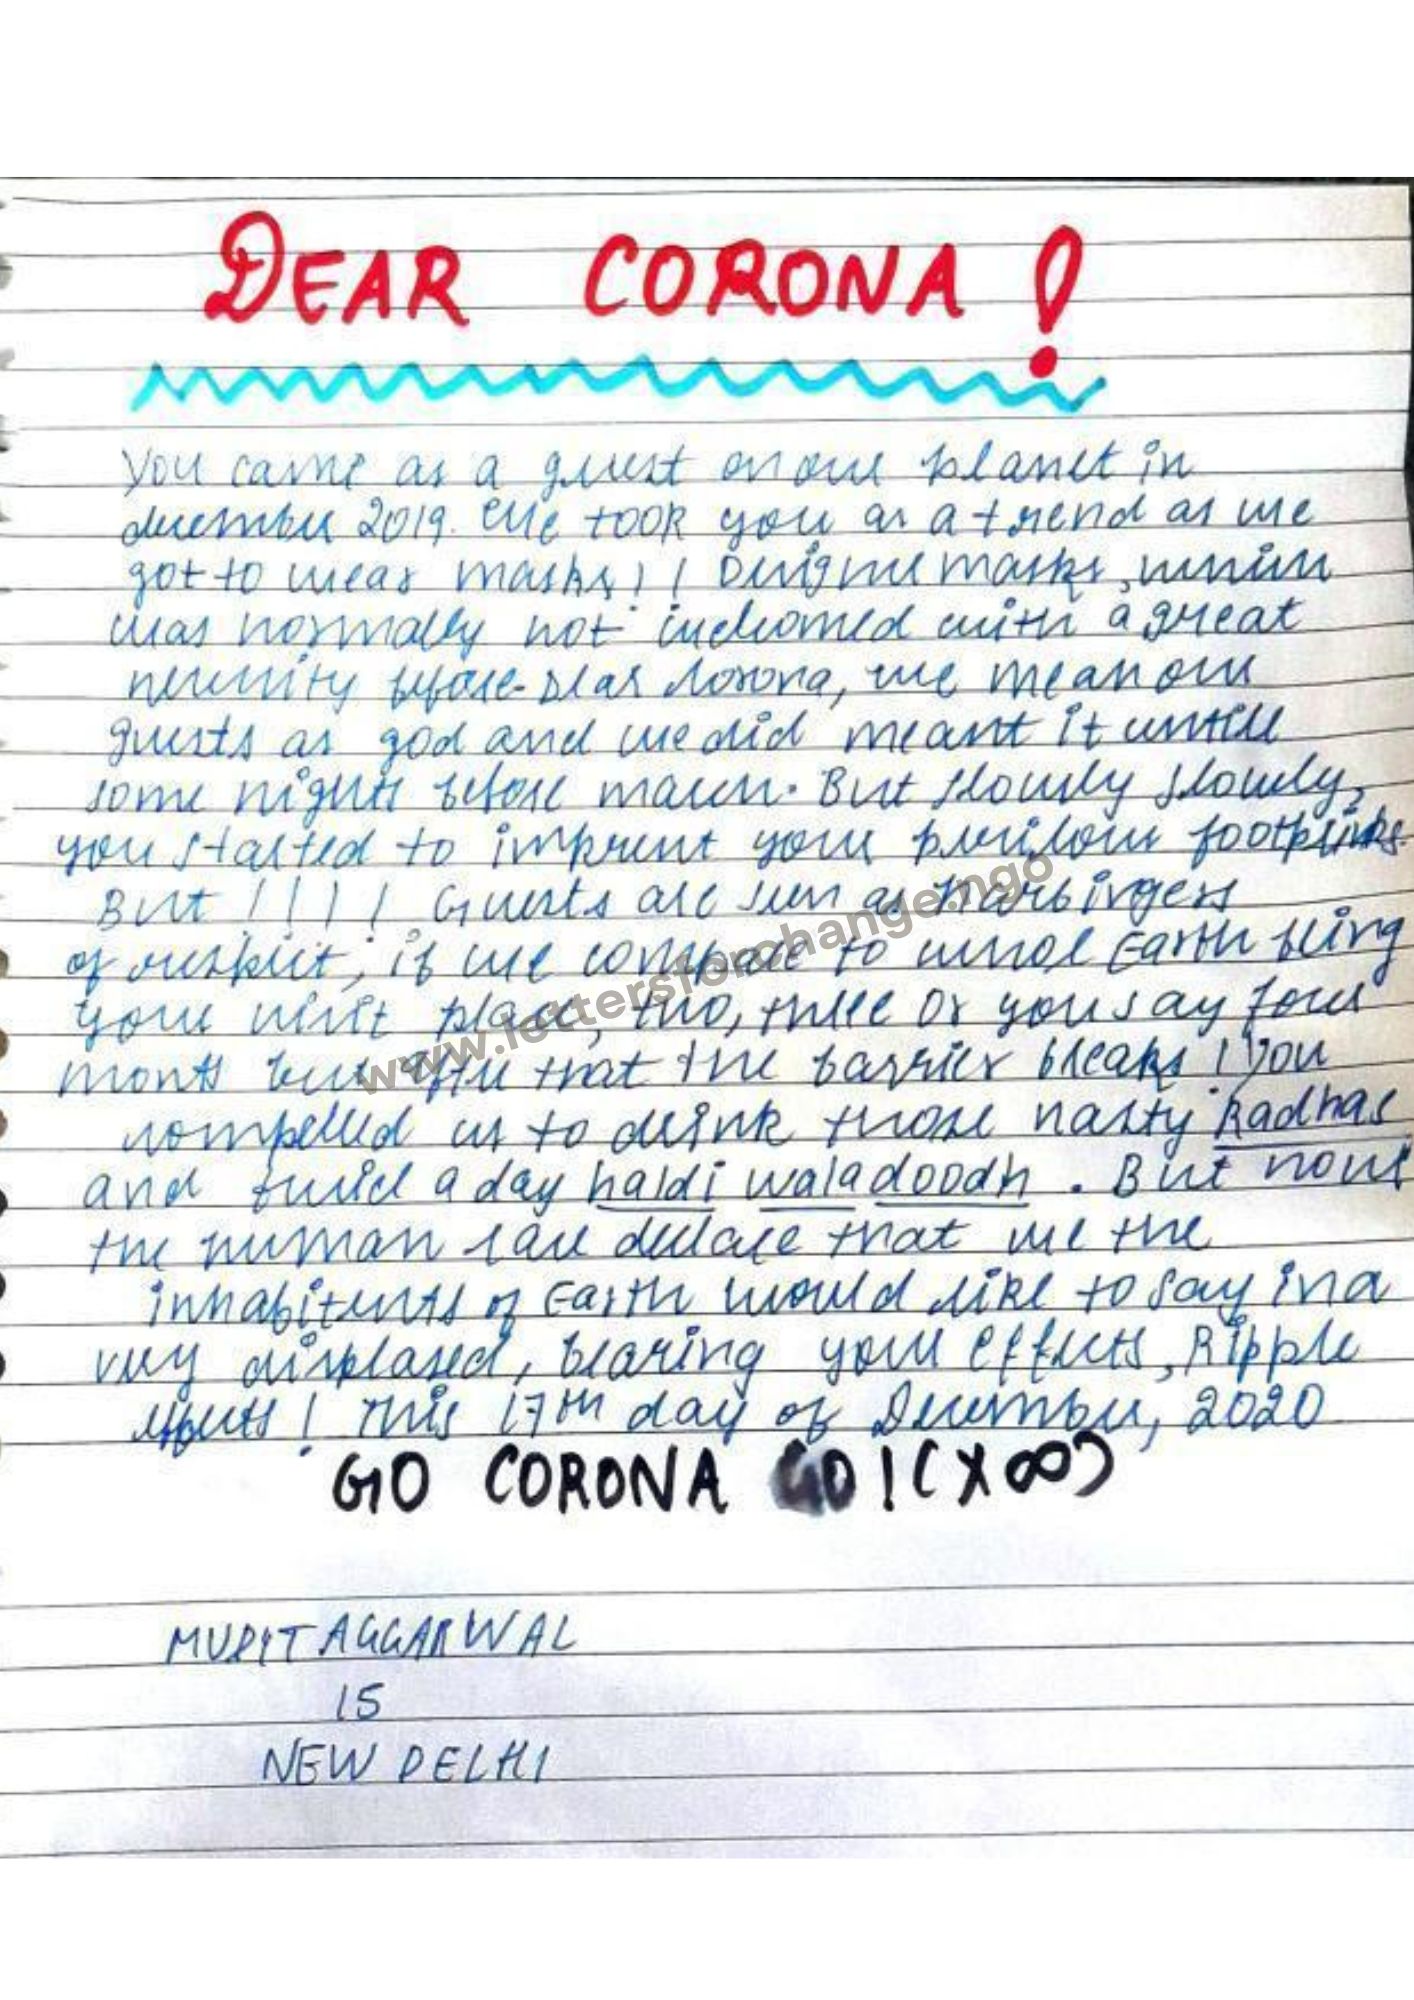 DEAR CORONA!
You came as a guest on our planet in
december 2019. We took you as a trend as we
got to wear masks!! Designer masks, which
was normally not welcomed with a great
necessity before. Dear Corona, we mean our
guests as god and we did meant it untill
some nights before march. But slowly slowly,
you started to imprent your perilous footprints.
But !!!! Guests are seen as harbingers
of respect, if we compare to whole Earth being
your visit place, two, three or you say four
month but after that the barrier breaks! You
compelled us to drink those nasty kadhas
and twice a day haldi wala doodh. But now
the human race declare that we the
inhabitents of Earth would like to say in a
very displased, bearing your effects, Ripple
effects! This 17th day of December, 2020
GO CORONA GO! (X ∞)
MUDIT AGGARWAL
15
NEW DELHI
www.lettersforchange.ngo